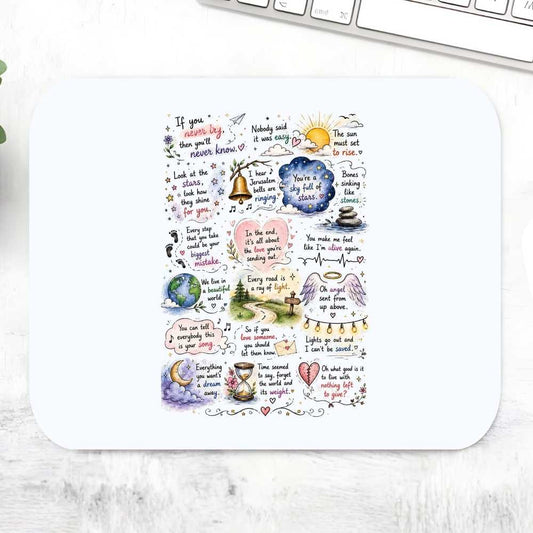 If you
never try,
then you'll
never know.
Nobody said
it was easy.
The sun
must set
to rise.
Look at the
stars,
look how
they shine
for you.
I hear
Jerusalem
bells are
ringing!
You're a
sky full of
stars.
Bones
sinking
like
stones.
Every step
that you take
could be your
biggest
mistake.
In the end,
it's all about
the love you're
sending out.
You make me feel
like I'm alive again.
We live in
a beautiful
world.
Every road is
a ray of light.
Oh angel
sent from
up above.
You can tell
everybody this
is your song.
So if you
love someone,
you should
let them know.
Lights go out and
I can't be saved.
Everything
you want's
a dream
away.
Time seemed
to say, forget
the world and
its weight.
Oh what good is it
to live with
nothing left
to give?
cmd